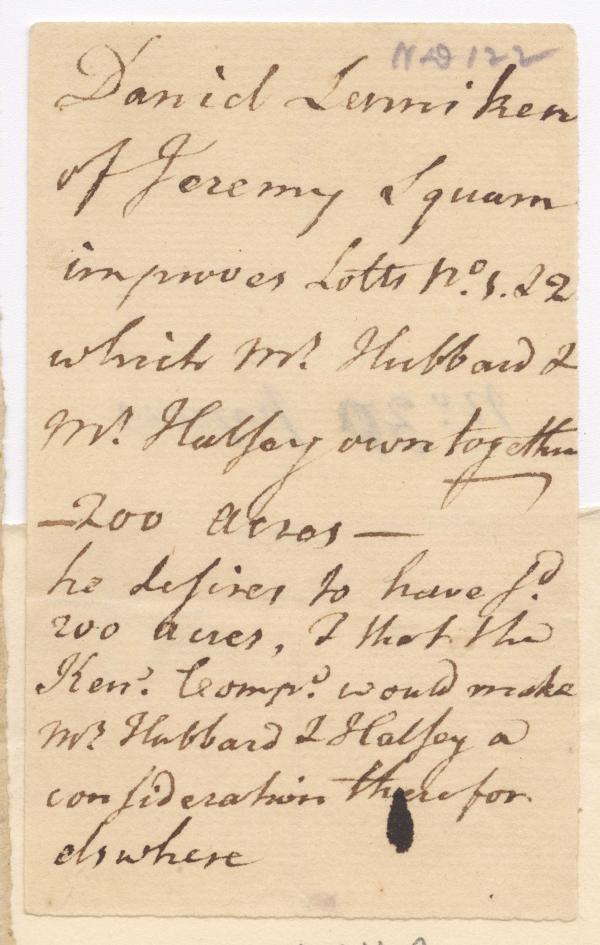 N D 122
Daniel Lenniken
of Jeremy Squam
improves Lotts No. 1. & 2
which Mr. Hubbard &
Mr. Halsey own together
— 200 acres —
he desires to have sd.
200 acres, & that the
Ken. Compy. would make
Mr Hubbard & Halsey a
consideration therefor
elswhere